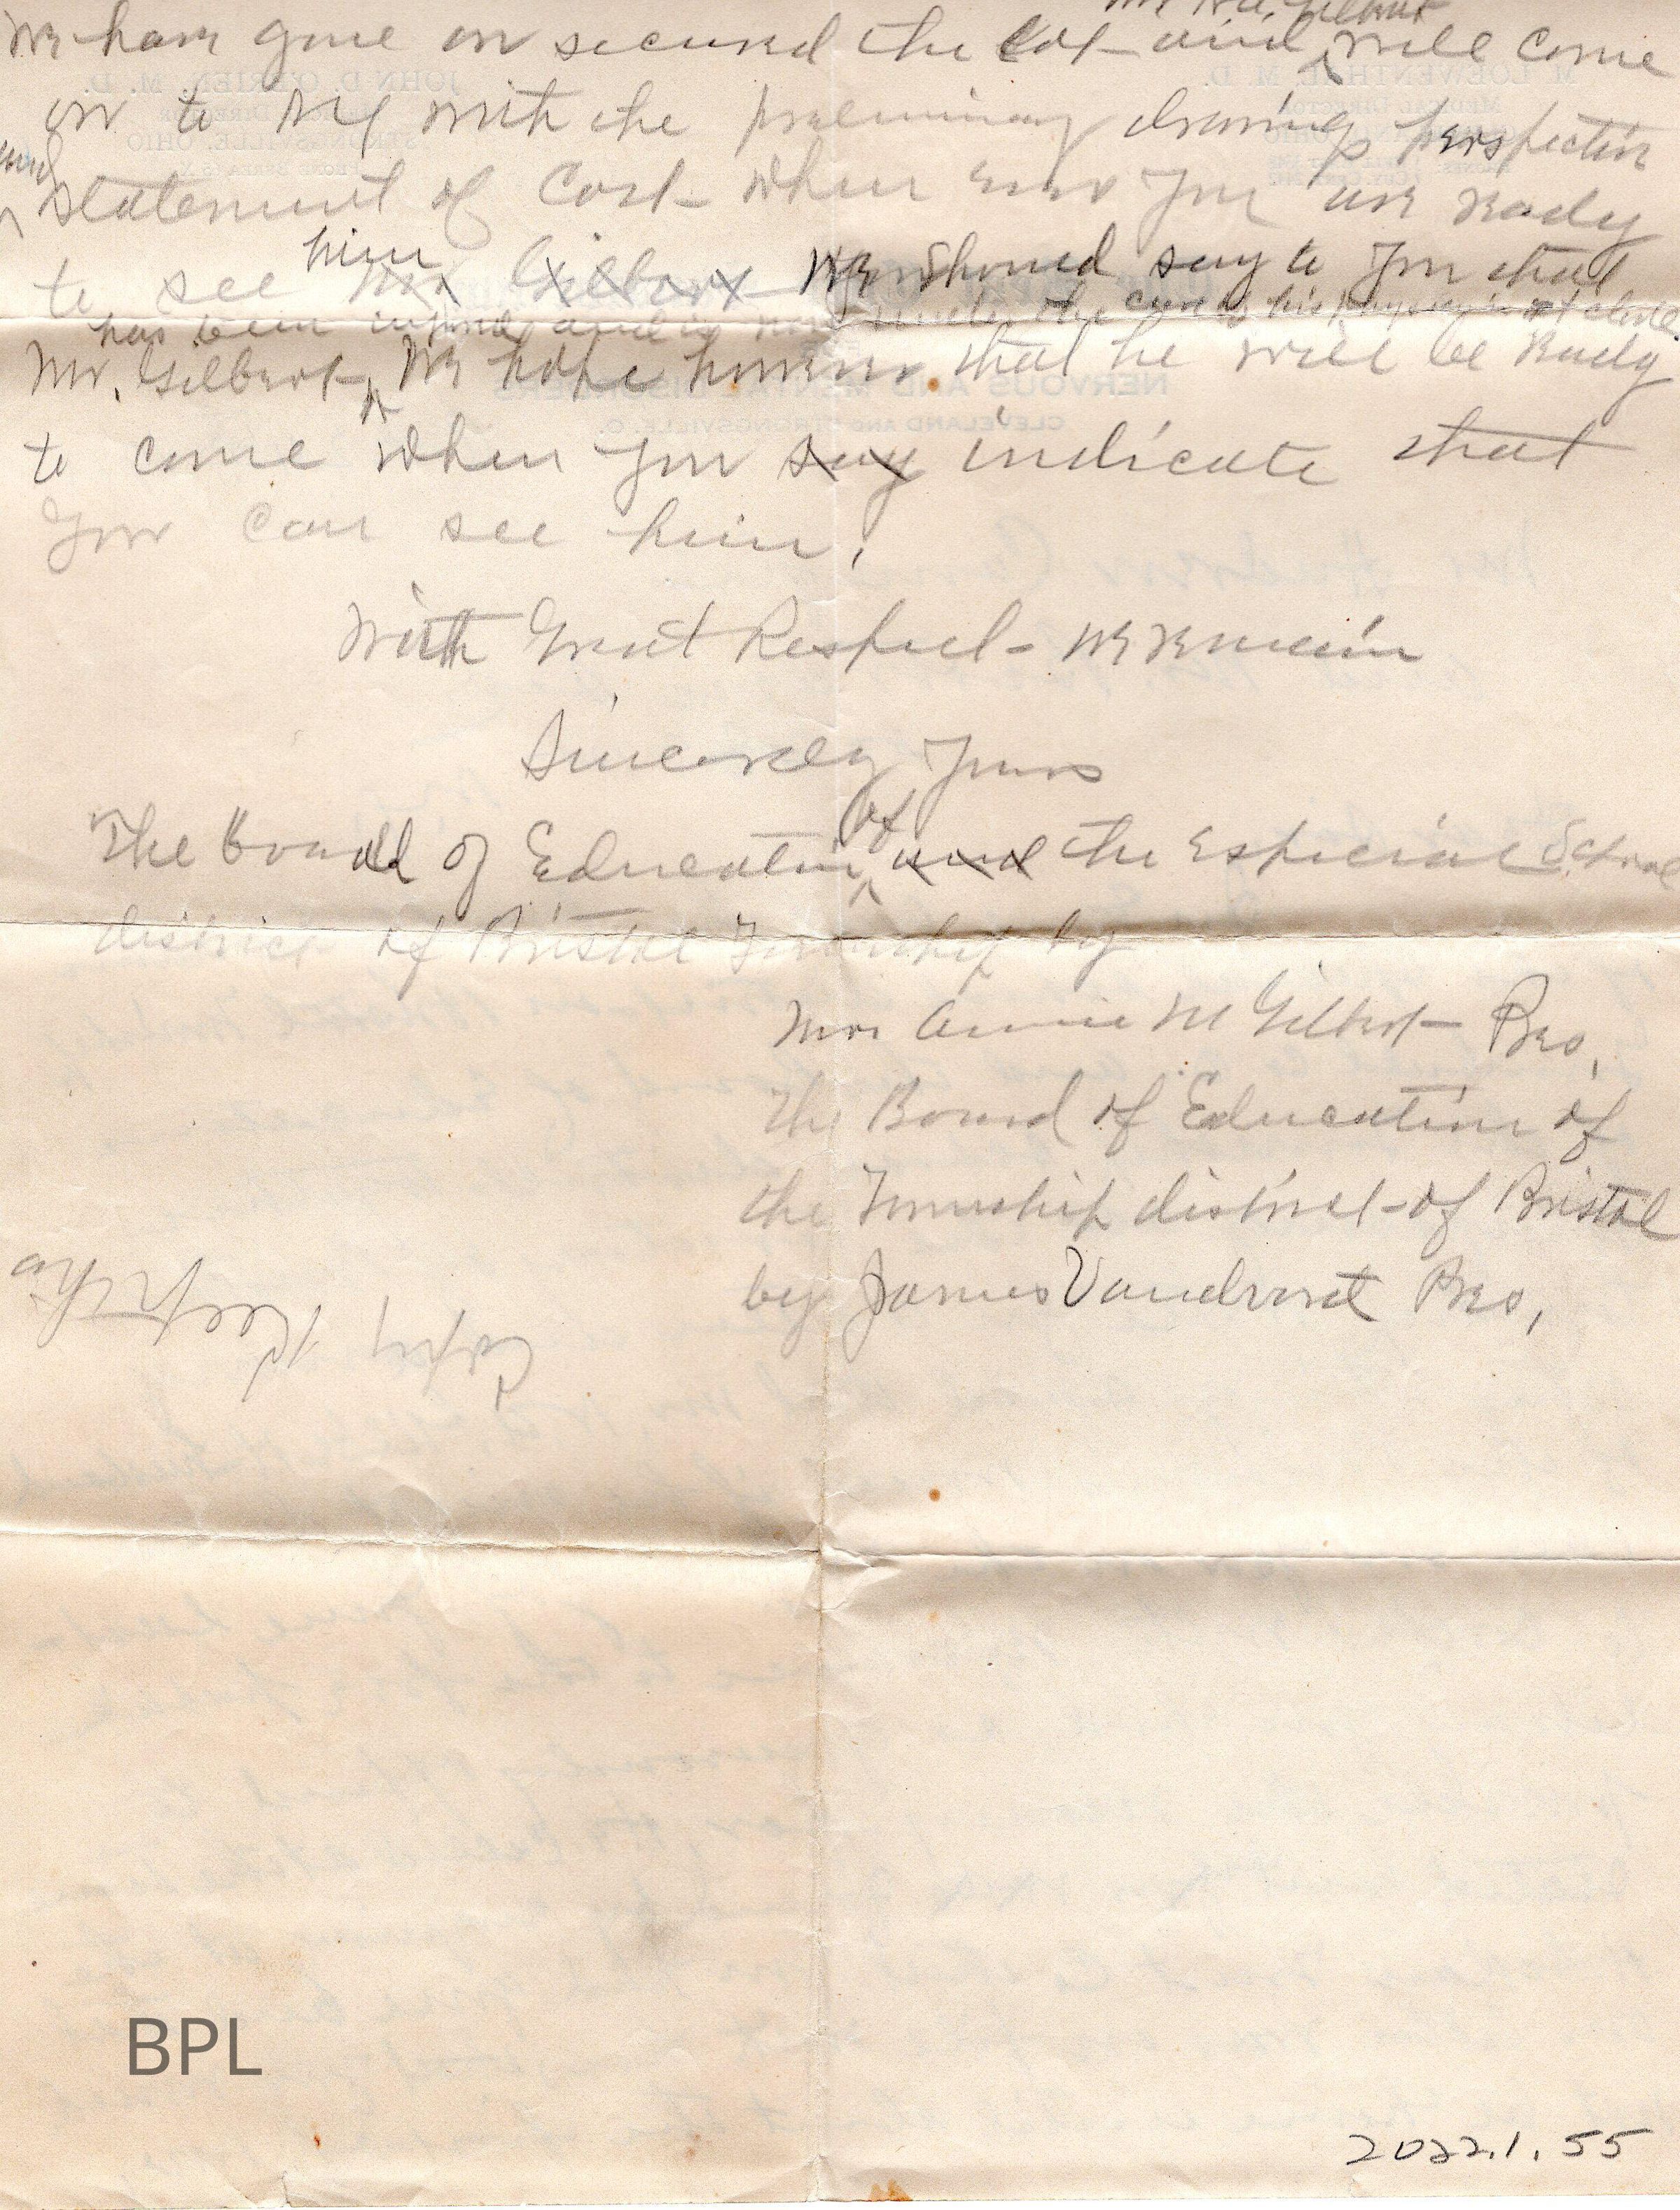 Mr H.C. Gilbert
We have gone on secured the Lot and will come
on to NY with the preliminary drawings perspective
and
statement of Cost when ever you are ready
him
to see Mr Gilbert We should say to you that
has been injured and is now under the care of his physician at
Mr. Gilbert, We hope however that he will be ready
to come when you say indicate that
you can see him.
With Great Respect - We remain
Sincerely Yours
of
The board of Education and the Especial School
district of Bristol Township by
Mrs Annie M Gilbert - Pres,
The Board of Education of
the Township district of Bristol
by James Vandervort Pres,
M. LOEWENTHAL, M. D.
MEDICAL DIRECTOR
JOHN D. O'BRIEN, M. D.
STRONGSVILLE, OHIO
NERVOUS AND MENTAL DISORDERS
CLEVELAND AND STRONGSVILLE, O.
BPL
2022.1.55